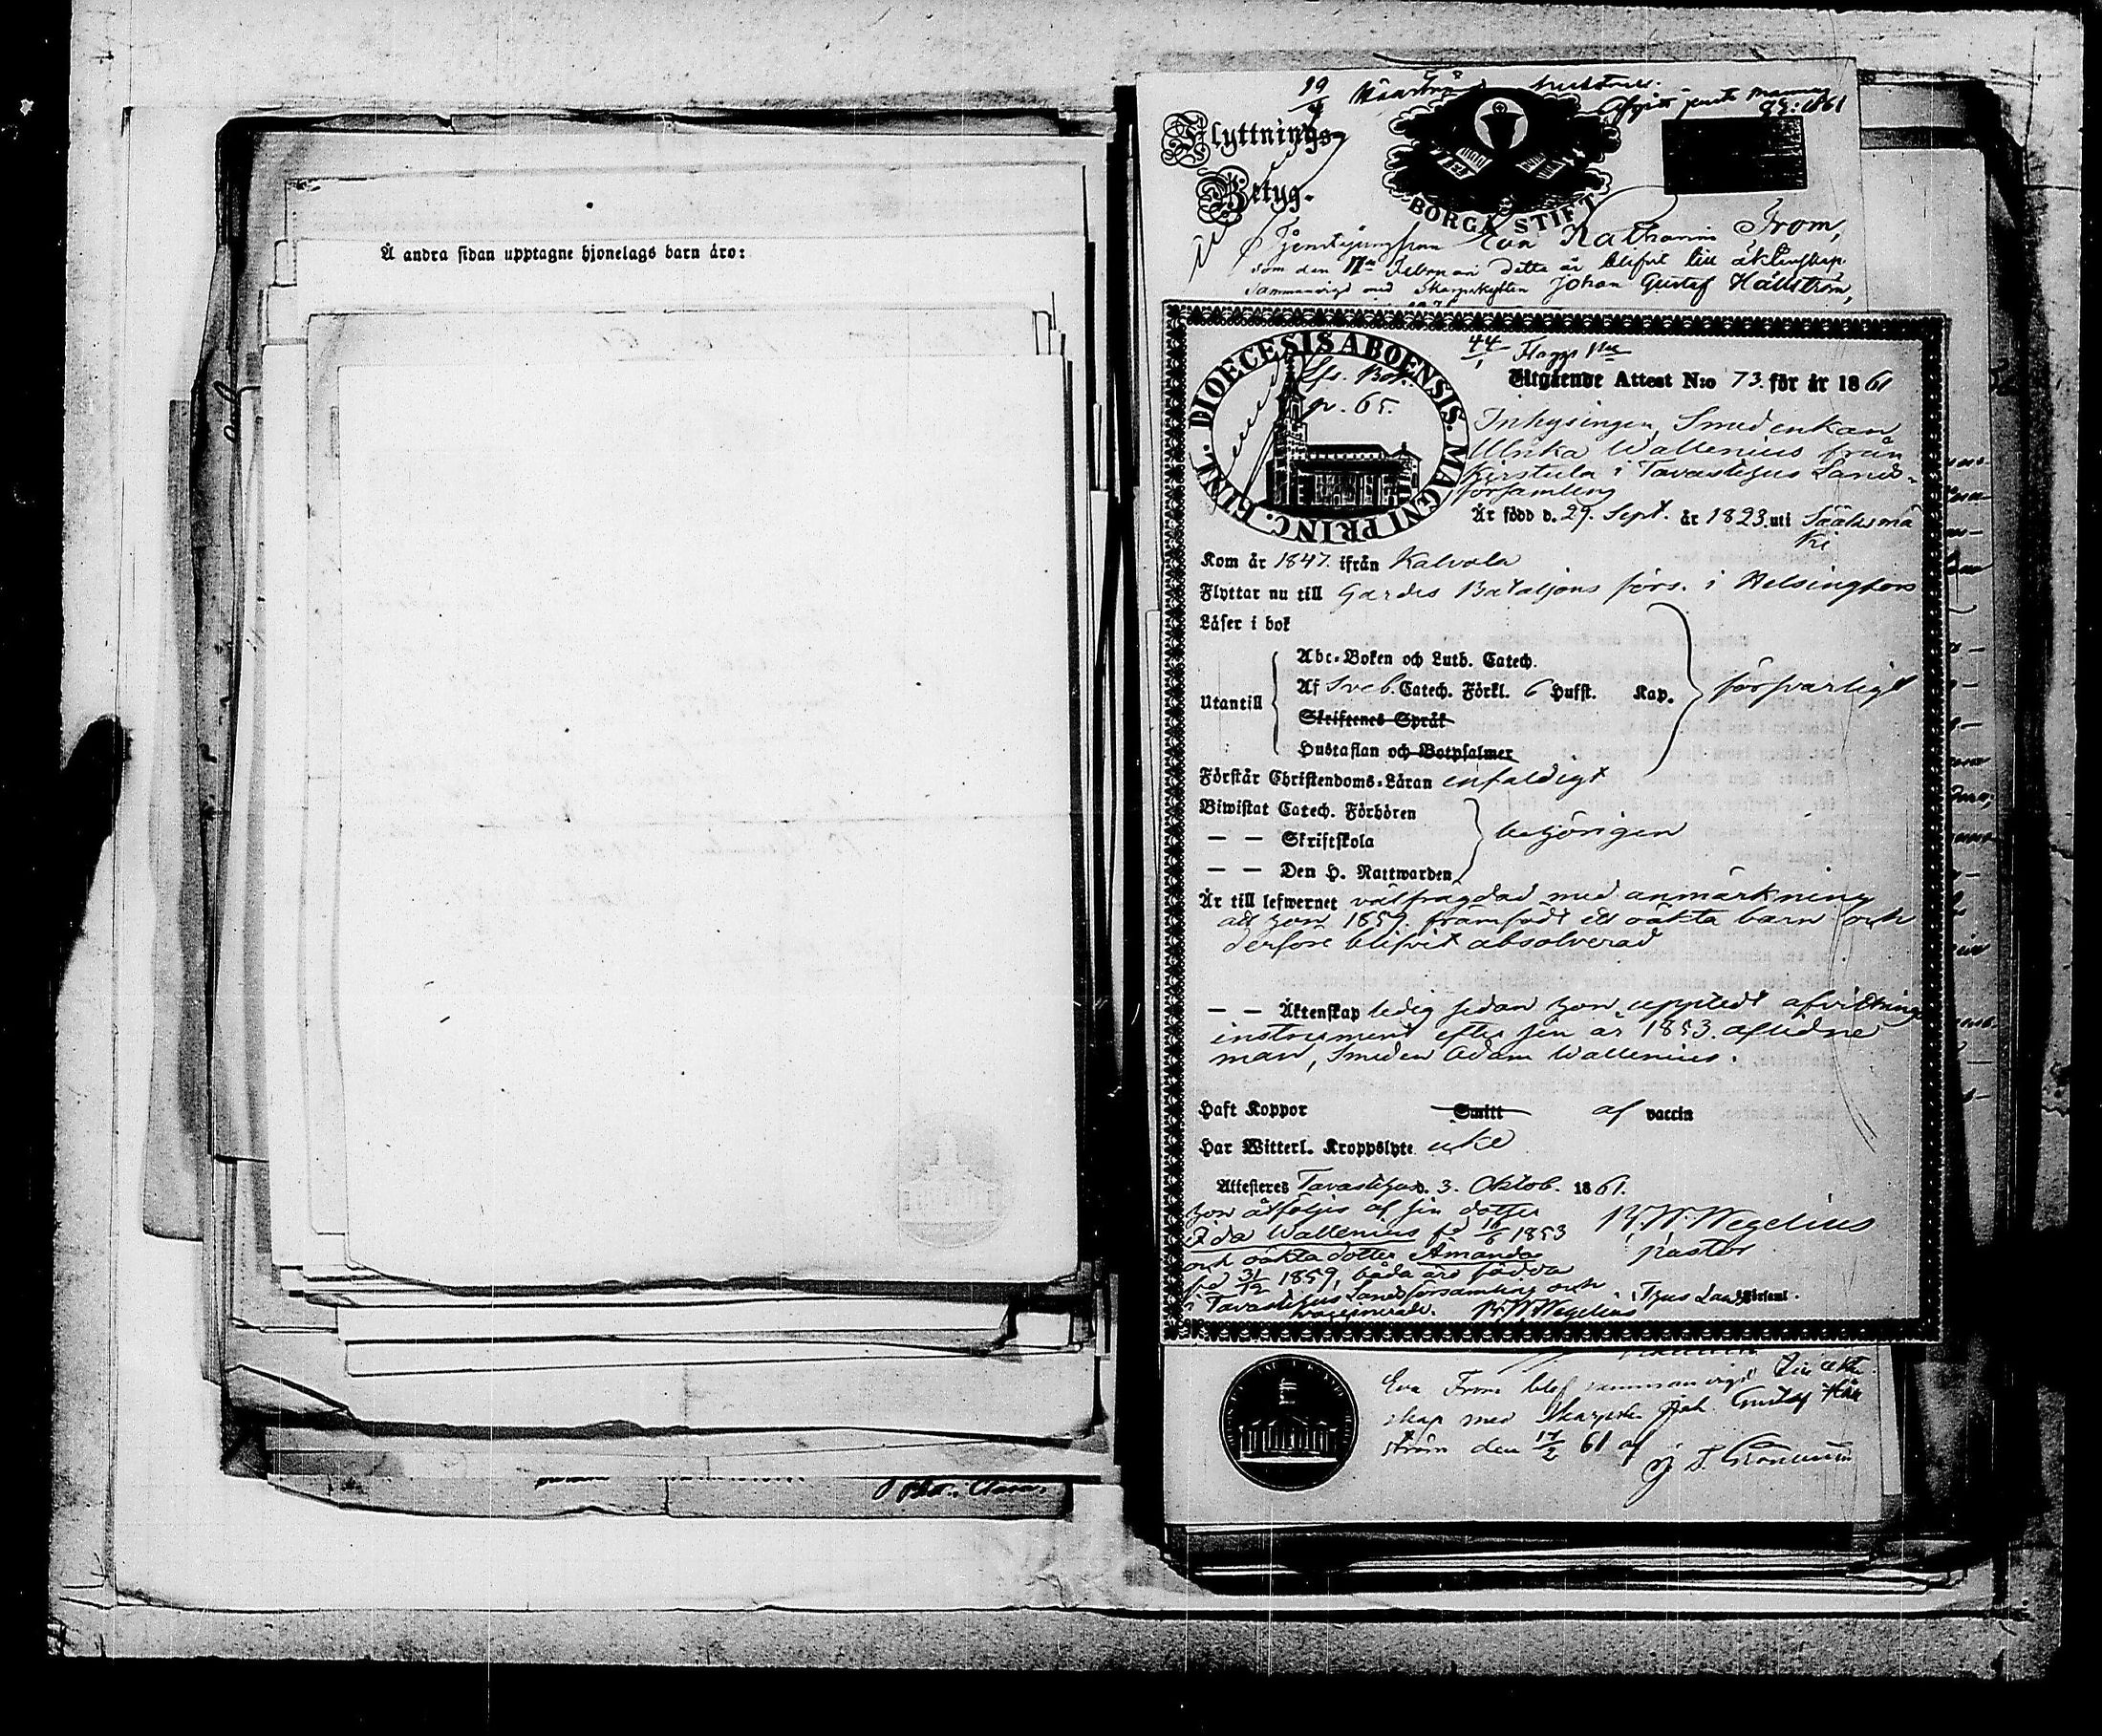 Å andra sidan upptagne hjonelags barn äro:
Clara.
99
Flyttnings-
Betyg.
BORGÅ STIFT
1861
Tjenstejungfrun Eva Katharina From,
som den 17de Februari detta år blifvit till äktenskap
sammanvigd med Skarpskytten Johan Gustaf Hällström,
DIOECESIS ABOENSIS. MAGNI PRINC. FINL.
Lfs. Bok.
p. 65.
44
Utgående Attest N:o 73. för år 1861
Inhysingen, Smedenkan
Ulrika Wallenius från
Kirstula i Tavastehus Lands-
församling
Är född d. 29. Sept. år 1823. uti Sääksmä
ki
Kom år 1847. ifrån Kalvola
Flyttar nu till Gardes Bataljons förs. i Helsingfors
Läser i bok
Utantill
Abc-Boken och Luth. Catech.
Af Sveb. Catech. Förkl. 6 Hufst. Kap.
försvarligt
Skriftenes Språk
Hustaflan och Botpsalmer
Förstår Christendoms-Läran enfaldigt
Biwistat Catech. Förhören
— — Skriftskola
behörigen
— — Den H. Nattwarden
Är till lefwernet välfrägdad med anmärkning
att hon 1859. framfödt ett oäkta barn och
derföre blifvit absolverad
— — Äktenskap ledig sedan hon uppvedt afvittrings
instrument efter sin år 1853. aflidne
man, Smeden Adam Wallenius.
Haft Koppor Smitt af vaccin
Har Witterl. Kroppslyte icke
Attesteres Tavastehus d. 3. Oktob. 1861.
hon åtföljes af sin dotter
Ida Wallenius fd 16/6 1853
och oäkta dotter Amanda
fd 31/12 1859, båda äro födda
i Tavastehus Landsförsamling och
vaccinerade.
Wegelius
pastor
Wegelius
i Thus Lands församl.
Eva From blef sammanvigd till äkten
skap med Skarpsk. Joh. Gustaf Häll
ström den 17/2 61 af